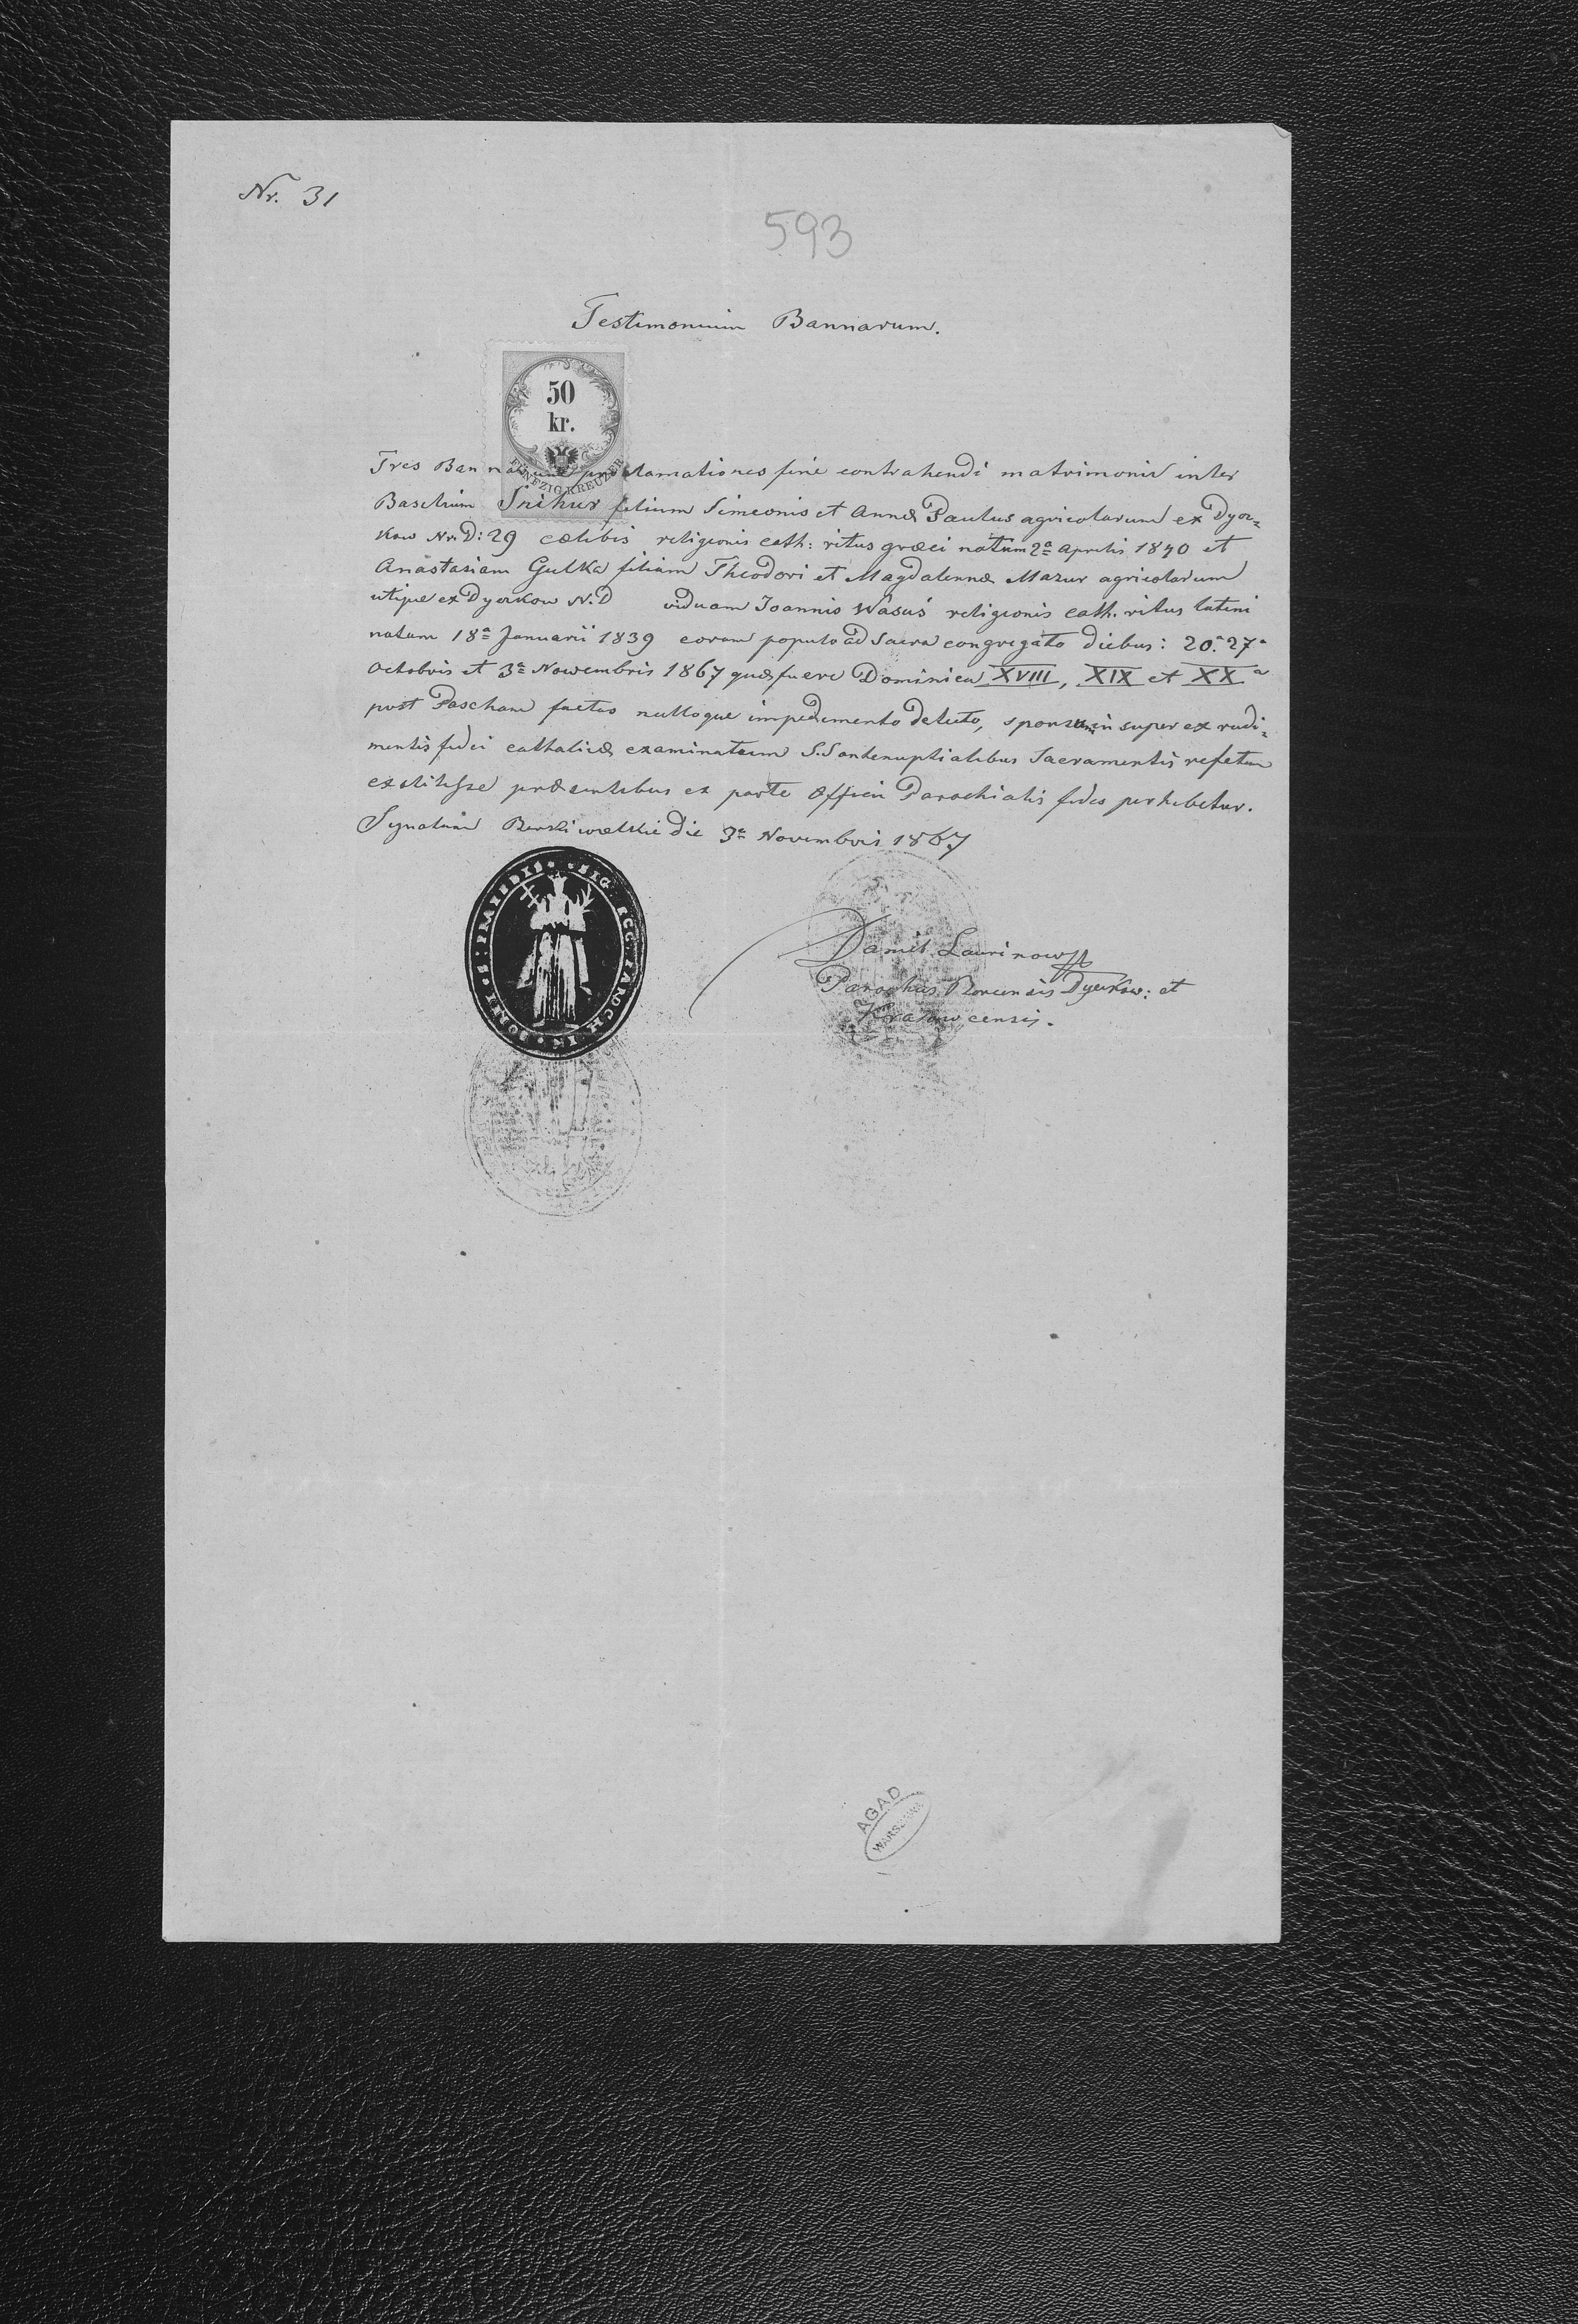 Nr. 31
593
Testimonium Bannarum.
50
kr.
FÜNFZIG KREUZER
Tres Bannarum proclamationes fine contrahendi matrimonii inter
Basilium Snihur filium Simeonis et Annæ Paulus agricolarum ex Dycz-
kow Nr. D: 29 cælibis religionis cath: ritus græci natum 2a Aprilis 1840 et
Anastasiam Gulka filiam Theodori et Magdalennæ Mazur agricolarum
utique ex Dyczkow N. D viduam Joannis Wasuś religionis cath. ritus latini
natam 18a Januarii 1839 coram populo ad Sacra congregato diebus: 20a 27a
Octobris et 3a Nowembris 1867 quæ fuere Dominica XVIII, XIX et XXa
post Pascham factas nulloque impedimento detecto, sponsum insuper ex rudi-
mentis fidei catholicæ examinatum S. S antenuptialibus Sacramentis refetum
exstitisse præsentibus ex parte Officii Parochialis fides perhibetur.
Signatum die 3a Novembris 1867
SIG: ECC: PAROCH: IN
Daniel Laurinow
Parochus Dyczkow: et
AGAD
WARSZAWA